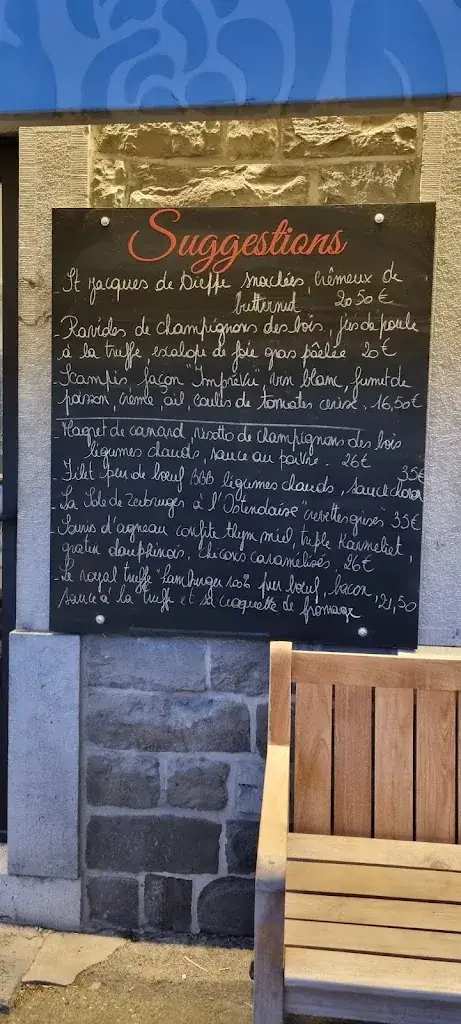 Suggestions
St Jacques de Dieppe snackées, crêmeux de
butternut 20,50 €
Ravioles de champignons des bois, jus de poule
à la truffe, escalope de foie gras poêlée 20 €
- Scampis façon "Imprévu", vin blanc, fumet de
poisson, crème, ail, coulis de tomates cerise, 16,50 €
- Magret de canard, risotto de champignons des bois
légumes chauds, sauce au poivre. 26 €
- Filet pur de bœuf BBB légumes chauds, sauce choron 35 €
- La Sole de Zeebruges à l'Ostendaise "crevettes grises" 35 €
- Souris d'agneau confite thym miel, triple Karmeliet,
gratin dauphinois, chicons caramélisés, 26 €
- Le royal truffe "hamburger 100% pur bœuf, bacon,
sauce à la truffe et sa croquette de fromage 21,50